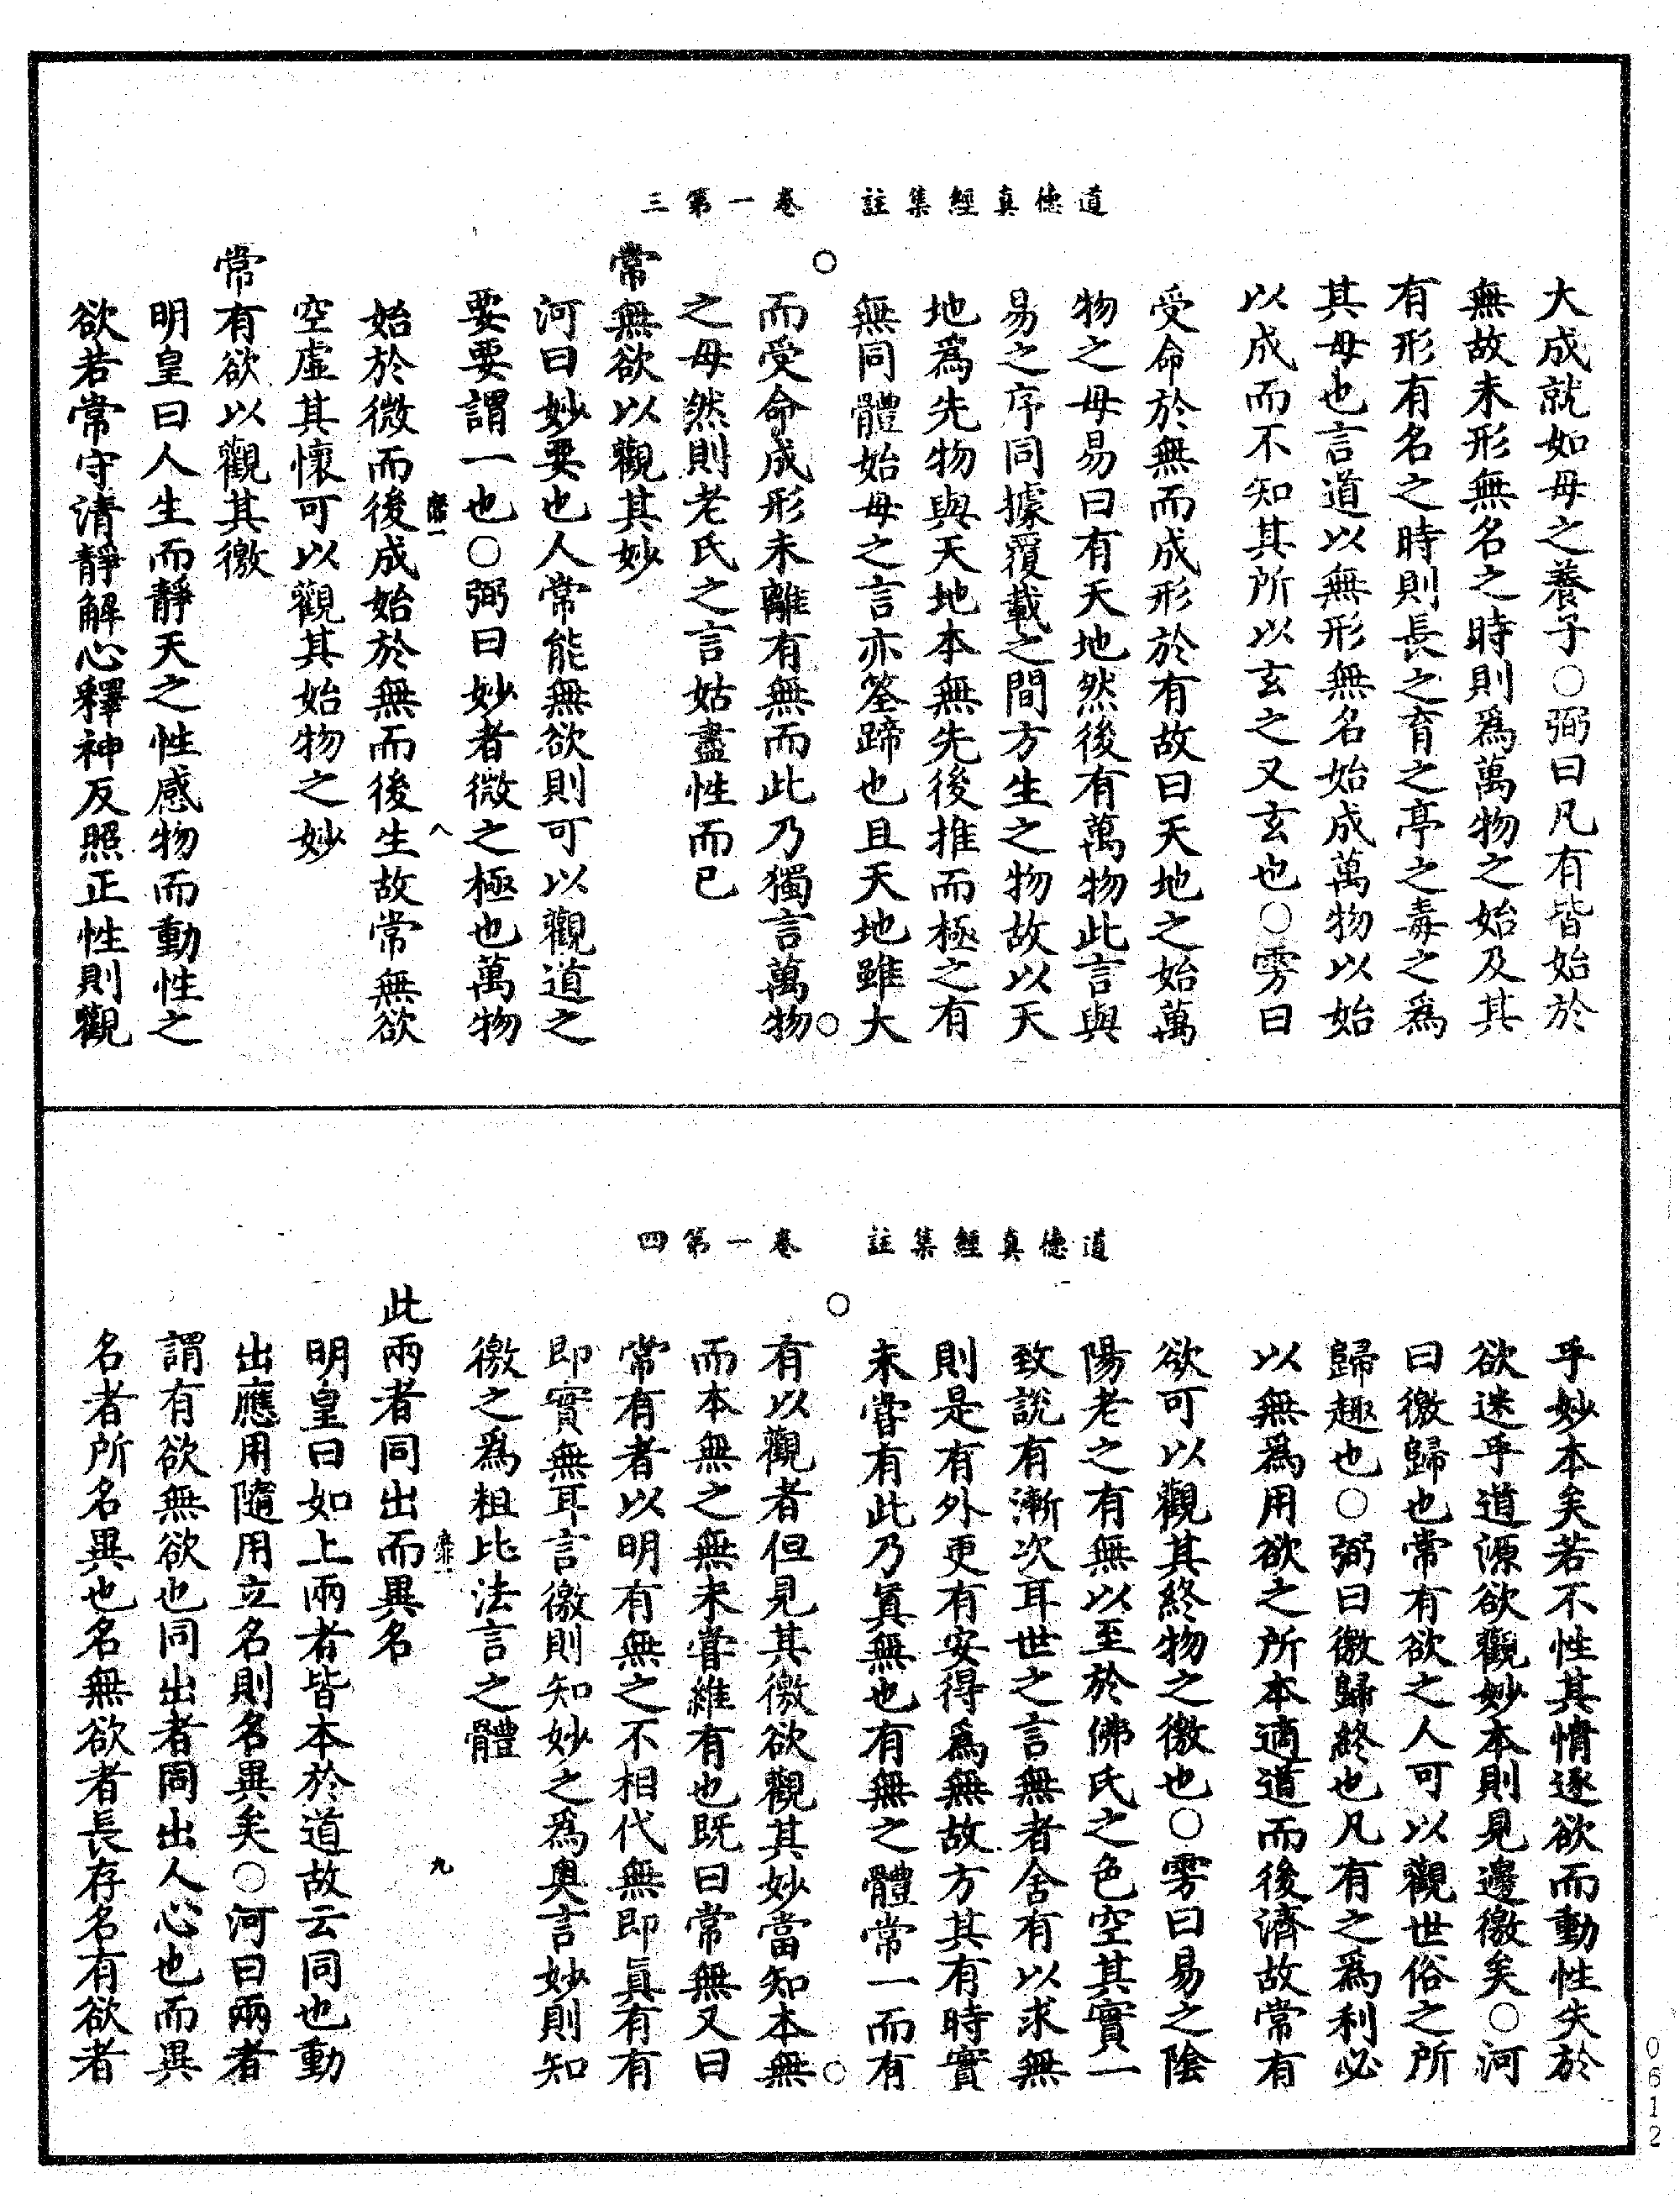 道德真經集註　卷一第三
大成就如母之養子○弼曰凡有皆始於
無故未形無名之時則爲萬物之始及其
有形有名之時則長之育之亭之毒之爲
其母也言道以無形無名始成萬物以始
以成而不知其所以玄之又玄也○雱曰
受命於無而成形於有故曰天地之始萬
物之母易曰有天地然後有萬物此言與
易之序同據覆載之間方生之物故以天
地爲先物與天地本無先後推而極之有
無同體始母之言亦筌蹄也且天地雖大
而受命成形未離有無而此乃獨言萬物
之母然則老氏之言姑盡性而已
常無欲以觀其妙
河曰妙要也人常能無欲則可以觀道之
要要謂一也○弼曰妙者微之極也萬物
八
始於微而後成始於無而後生故常無欲
空虛其懷可以觀其始物之妙
常有欲以觀其徼
明皇曰人生而靜天之性感物而動性之
欲若常守清靜解心釋神反照正性則觀
道德真經集註　卷一第四
乎妙本矣若不性其情逐欲而動性失於
欲迷乎道源欲觀妙本則見邊徼矣○河
曰徼歸也常有欲之人可以觀世俗之所
歸趣也○弼曰徼歸終也凡有之爲利必
以無爲用欲之所本適道而後濟故常有
欲可以觀其終物之徼也○雱曰易之陰
陽老之有無以至於佛氏之色空其實一
致說有漸次耳世之言無者舍有以求無
則是有外更有安得爲無故方其有時實
未甞有此乃眞無也有無之體常一而有
有以觀者但見其徼欲觀其妙當知本無
而本無之無未甞維有也既曰常無又曰
常有者以明有無之不相代無即眞有有
即實無耳言徼則知妙之爲奥言妙則知
徼之爲粗比法言之體
九
此兩者同出而異名
明皇曰如上兩者皆本於道故云同也動
出應用隨用立名則名異矣○河曰兩者
謂有欲無欲也同出者同出人心也而異
名者所名異也名無欲者長存名有欲者
0612